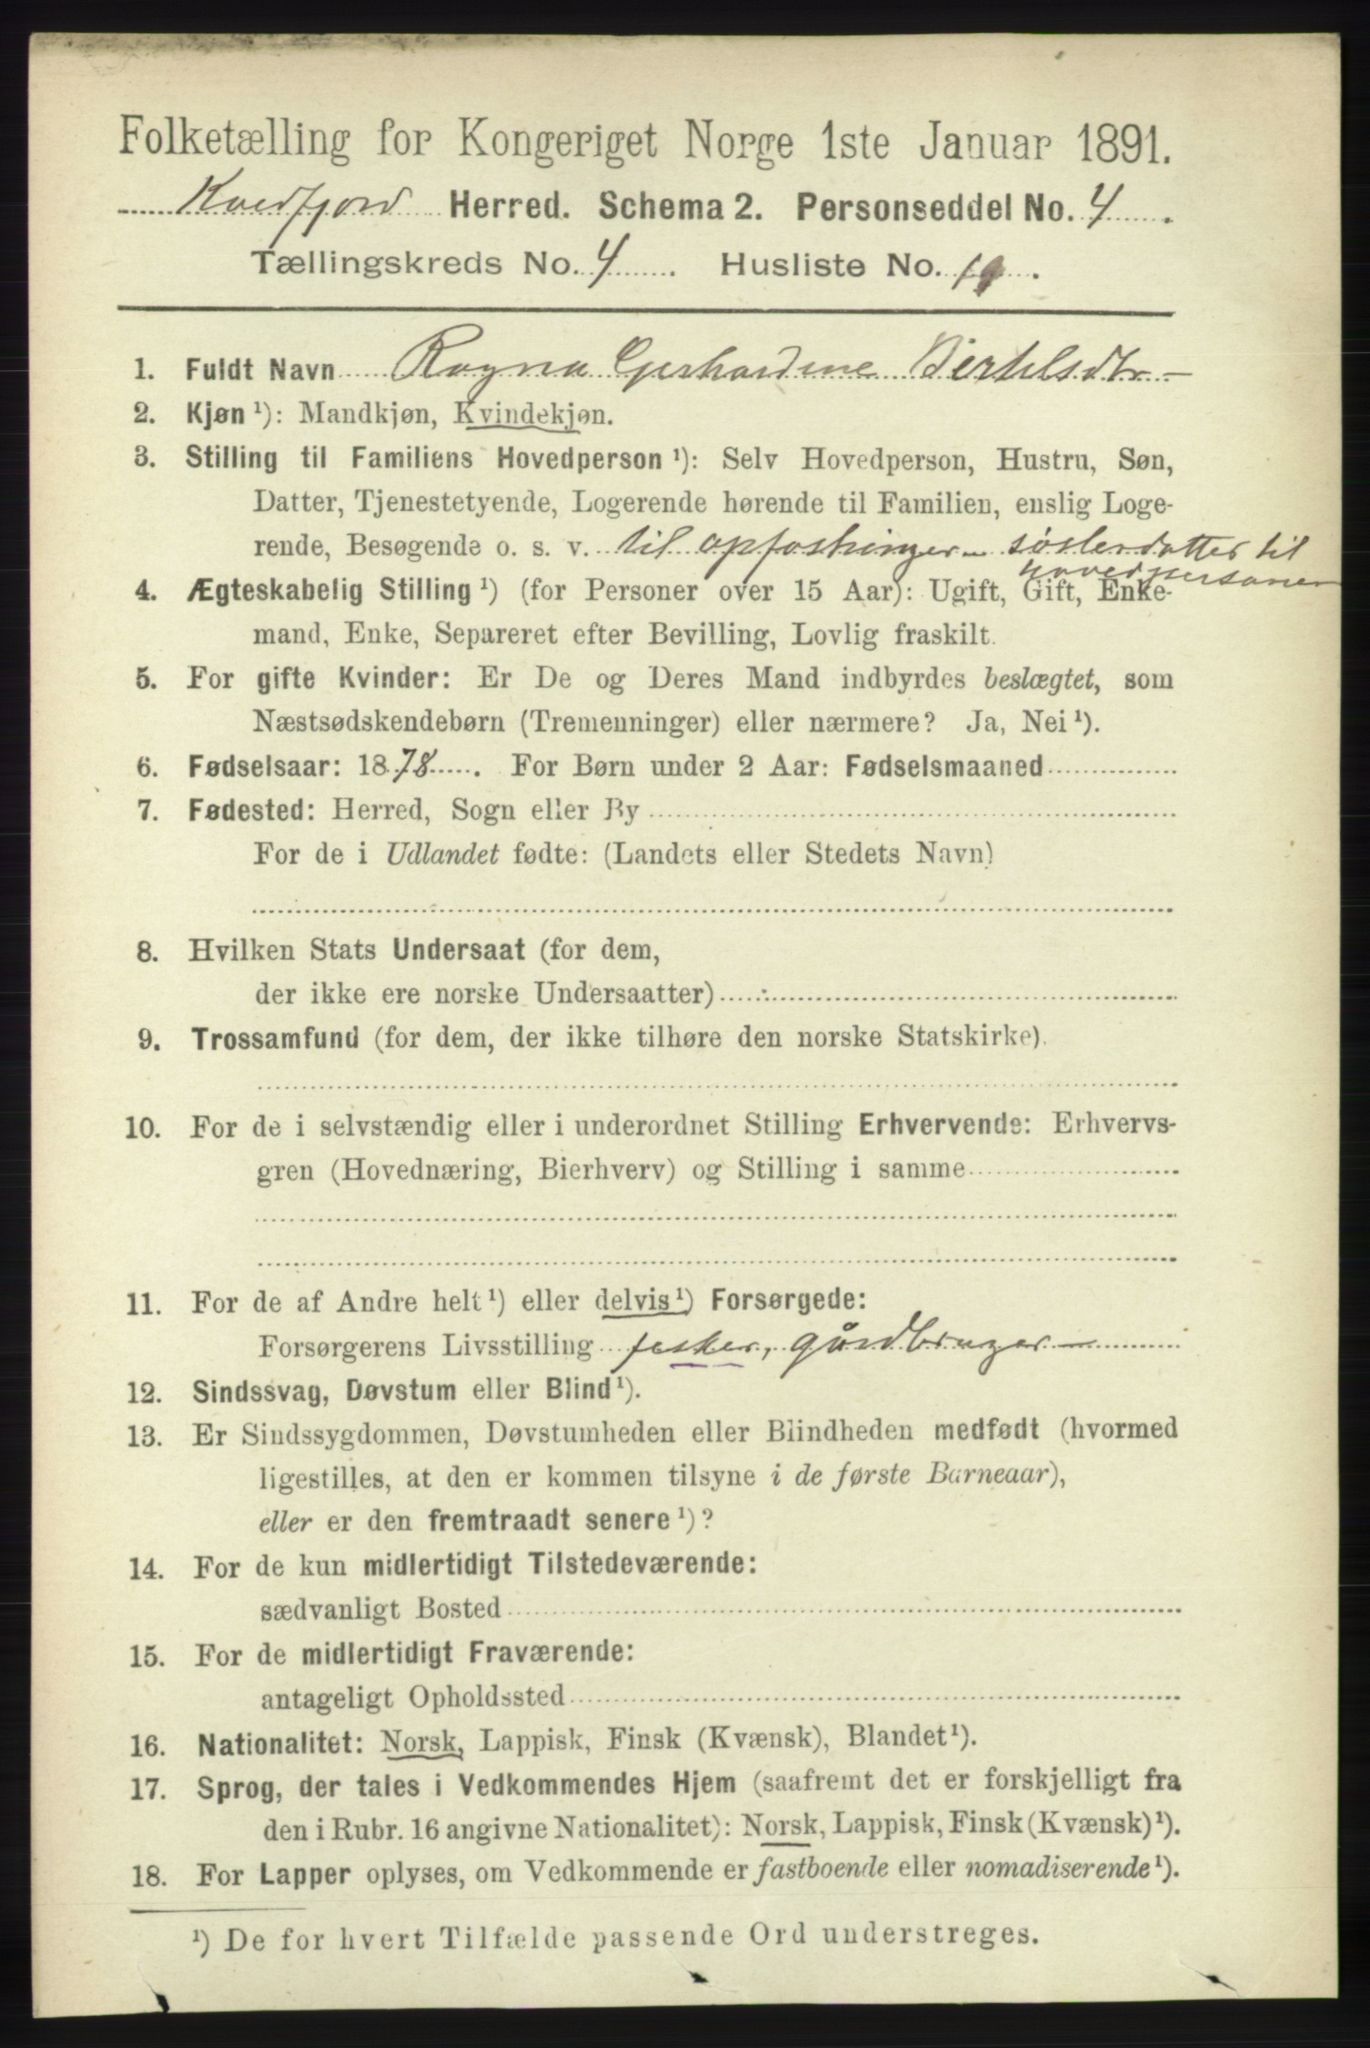 Folketælling for Kongeriget Norge 1ste Januar 1891.
Kvedfjord Herred. Schema 2. Personseddel No. 4
Tællingskreds No. 4 Husliste No. 19.
1. Fuldt Navn Ragna Gerhardine Bertelsdtr
2. Kjøn ¹): Mandkjøn, Kvindekjøn.
3. Stilling til Familiens Hovedperson ¹): Selv Hovedperson, Hustru, Søn,
Datter, Tjenestetyende, Logerende hørende til Familien, enslig Loge-
rende, Besøgende o. s. v. til opfostringen søsterdatter til
hovedpersonen
4. Ægteskabelig Stilling ¹) (for Personer over 15 Aar): Ugift, Gift, Enke-
mand, Enke, Separeret efter Bevilling, Lovlig fraskilt.
5. For gifte Kvinder: Er De og Deres Mand indbyrdes beslægtet, som
Næstsødskendebørn (Tremenninger) eller nærmere? Ja, Nei ¹).
6. Fødselsaar: 1878. For Børn under 2 Aar: Fødselsmaaned
7. Fødested: Herred, Sogn eller By
For de i Udlandet fødte: (Landets eller Stedets Navn)
8. Hvilken Stats Undersaat (for dem,
der ikke ere norske Undersaatter)
9. Trossamfund (for dem, der ikke tilhøre den norske Statskirke).
10. For de i selvstændig eller i underordnet Stilling Erhvervende: Erhvervs-
gren (Hovednæring, Bierhverv) og Stilling i samme
11. For de af Andre helt ¹) eller delvis ¹) Forsørgede:
Forsørgerens Livsstilling fisker, gårdbruger
12. Sindssvag, Døvstum eller Blind ¹).
13. Er Sindssygdommen, Døvstumheden eller Blindheden medfødt (hvormed
ligestilles, at den er kommen tilsyne i de første Barneaar),
eller er den fremtraadt senere ¹)?
14. For de kun midlertidigt Tilstedeværende:
sædvanligt Bosted
15. For de midlertidigt Fraværende:
antageligt Opholdssted
16. Nationalitet: Norsk, Lappisk, Finsk (Kvænsk), Blandet ¹).
17. Sprog, der tales i Vedkommendes Hjem (saafremt det er forskjelligt fra
den i Rubr. 16 angivne Nationalitet): Norsk, Lappisk, Finsk (Kvænsk) ¹).
18. For Lapper oplyses, om Vedkommende er fastboende eller nomadiserende ¹).
¹) De for hvert Tilfælde passende Ord understreges.